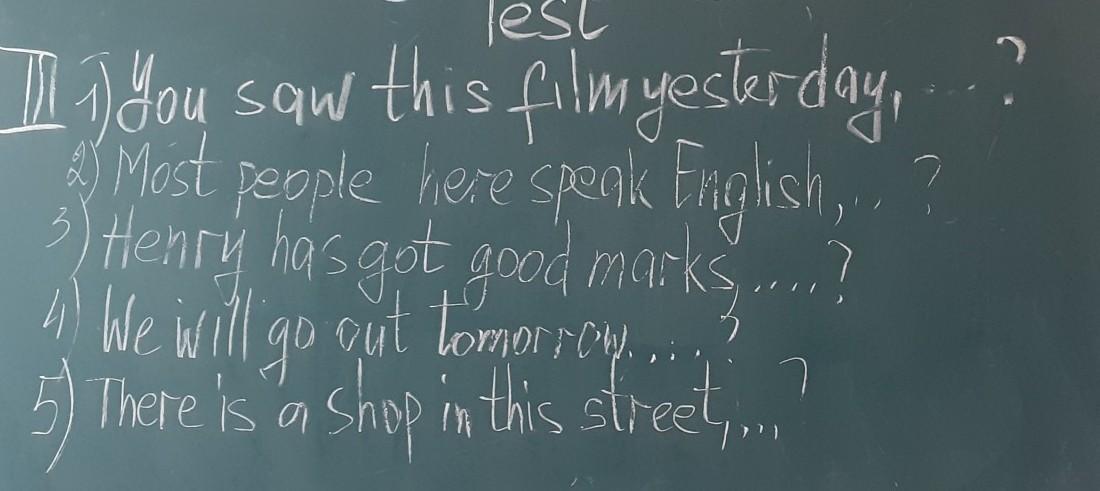 Test
III 1) You saw this film yesterday, ....?
2) Most people here speak English, ...?
3) Henry has got good marks, ....?
4) We will go out tomorrow.....?
5) There is a shop in this street, ...?